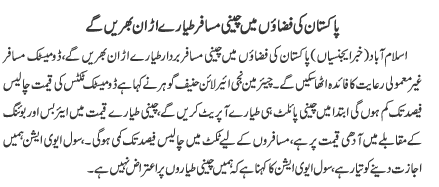 پاکستان کی فضاؤں میں چینی مسافر طیارے اڑان بھریں گے
اسلام آباد (خبر ایجنسیاں) پاکستان کی فضاؤں میں چینی مسافر بردار طیارے اڑان بھریں گے، ڈومیسٹک مسافر
غیر معمولی رعایت کا فائدہ اٹھا سکیں گے۔ چیئرمین نجی ائیرلائن حنیف گوہر نے کہا ہے ڈومیسٹک ٹکٹس کی قیمت چالیس
فیصد تک کم ہوں گی ابتدا میں چینی پائلٹ ہی طیارے آپریٹ کریں گے، چینی طیارے قیمت میں ائیربس اور بوئنگ
کے مقابلے میں آدھی قیمت پر ہے، مسافروں کے لیے ٹکٹ میں چالیس فیصد تک کمی ہوگی۔ سول ایوی ایشن ہمیں
اجازت دینے کو تیار ہے، سول ایوی ایشن کا کہنا ہے کہ ہمیں چینی طیاروں پر اعتراض نہیں ہے۔